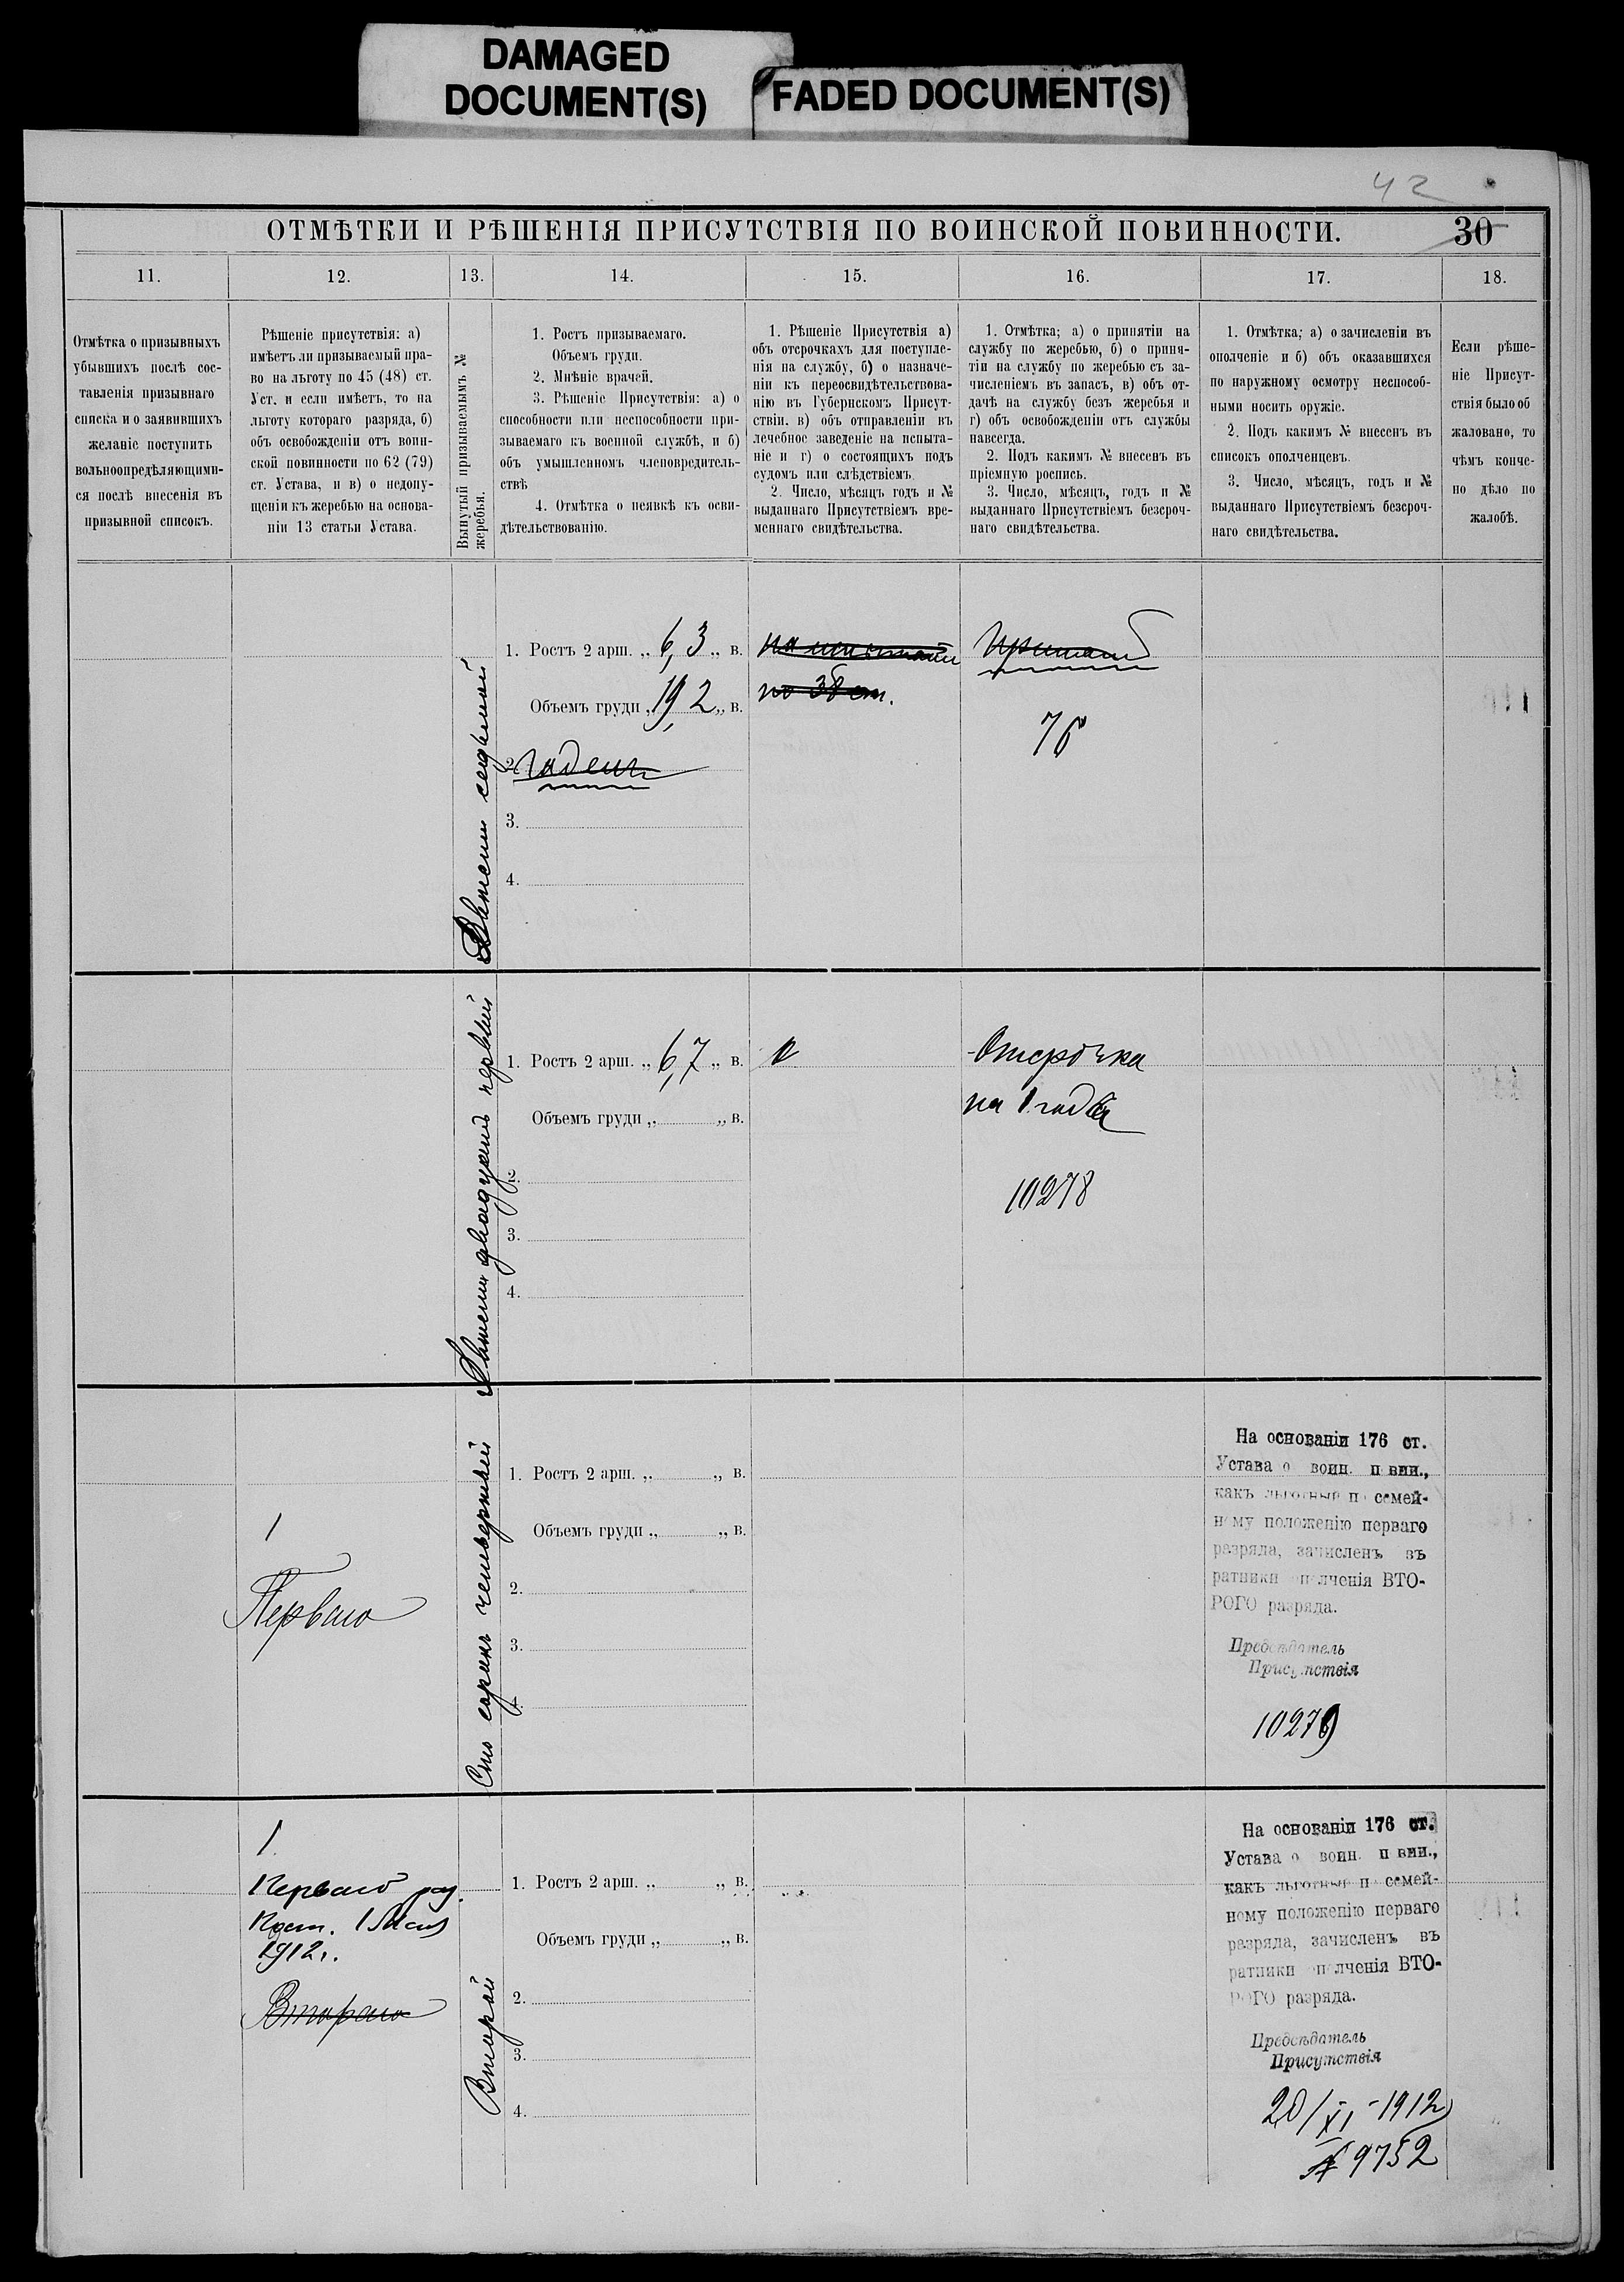 DAMAGED
DOCUMENT(S)
FADED DOCUMENT(S)
42
ОТМѢТКИ И РѢШЕНІЯ ПРИСУТСТВІЯ ПО ВОИНСКОЙ ПОВИННОСТИ.
30
11.
12.
13.
14.
15.
16.
17.
18.
Отмѣтка о призывныхъ
убывшихъ послѣ сос-
тавленія призывнаго
списка и о заявившихъ
желаніе поступить
вольноопредѣляющими-
ся послѣ внесенія въ
призывной списокъ.
Рѣшеніе присутствія: а)
имѣетъ ли призываемый пра-
во на льготу по 45 (48) ст.
Уст. и если имѣетъ, то на
льготу котораго разряда, б)
объ освобожденіи отъ воин-
ской повинности по 62 (79)
ст. Устава, и в) о недопу-
щеніи къ жеребью на основа-
ніи 13 статьи Устава.
Вынутый призываемымъ №
жеребья.
1. Ростъ призываемаго.
Объемъ груди.
2. Мнѣніе врачей.
3. Рѣшеніе Присутствія: а) о
способности или неспособности при-
зываемаго къ военной службѣ, и б)
объ умышленномъ членовредитель-
ствѣ
4. Отмѣтка о неявкѣ къ осви-
дѣтельствованію.
1. Рѣшеніе Присутствія а)
объ отсрочкахъ для поступле-
нія на службу, б) о назначе-
ніи къ переосвидѣтельствова-
нію въ Губернскомъ Присут-
ствіи. в) объ отправленіи въ
лечебное заведеніе на испыта-
ніе и г) о состоящихъ подъ
судомъ или слѣдствіемъ
2. Число, мѣсяцъ годъ и №
выданнаго Присутствіемъ вре-
меннаго свидѣтельства.
1. Отмѣтка; а) о принятіи на
службу по жеребью, б) о приня-
тіи на службу по жеребью съ за-
численіемъ въ запасъ, в) объ от-
дачѣ на службу безъ жеребья и
г) объ освобожденіи отъ службы
навсегда.
2. Подъ какимъ № внесенъ въ
пріемную роспись.
3. Число, мѣсяцъ, годъ и №
выданнаго Присутствіемъ безсроч-
наго свидѣтельства.
1. Отмѣтка; а) о зачисленіи въ
ополченіе и б) объ оказавшихся
по наружному осмотру неспособ-
ными носить оружіе.
2. Подъ какимъ № внесенъ въ
списокъ ополченцевъ.
3. Число, мѣсяцъ, годъ и №
выданнаго Присутствіемъ безсроч-
наго свидѣтельства.
Если рѣше-
ніе Присут-
ствія было об
жаловано, то
чѣмъ конче-
но дѣло по
жалобѣ.
Двѣсти седьмой
1. Ростъ 2 арш. „ 6,3 „ в.
Объемъ груди „ 19,2 „ в.
2. Годенъ
3.
4.
на испытаніе
по 38 ст.
Принятъ
76
Двѣсти двадцать первый
1. Ростъ 2 арш. „ 6,7 „ в.
Объемъ груди „ „ в.
2.
3.
4.
Отсрочка
на 1 года
10278
1
Перваго
Сто сорокъ четвертый
1. Ростъ 2 арш. „ „ в.
Объемъ груди „ „ в.
2.
3.
4.
На основаніи 176 ст.
Устава о воин. п вин.,
какъ льготный п семей-
ному положенію перваго
разряда, зачисленъ въ
ратники п лченія ВТО-
РОГО разряда.
Предсѣдатель
Присутствія
10279
1
Перваго раз.
Пост. 1 Мая
1912 г.
Втораго
Второй
1. Ростъ 2 арш. „ „ в.
Объемъ груди „ „ в.
2.
3.
4.
На основаніи 176 ст.
Устава о воин. п вин.,
какъ льготный п семей-
ному положенію перваго
разряда, зачисленъ въ
ратники п лченія ВТО-
РОГО разряда.
Предсѣдатель
Присутствія
20/XI-1912
№ 9752